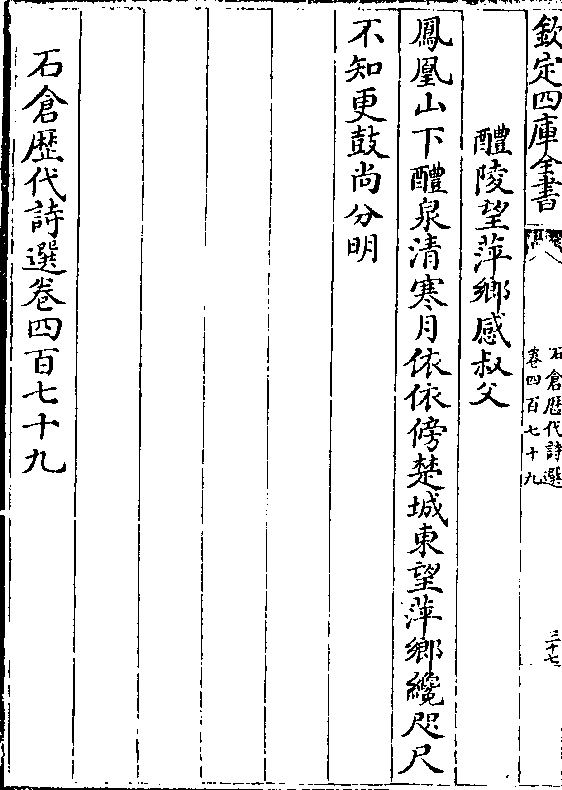 欽定四庫全書
石倉歴代詩選
卷四百七十九
三十七
醴陵望萍鄉感叔父
鳳凰山下醴泉清寒月依依傍楚城東望萍鄉纔咫尺
不知更鼓尚分明
石倉歴代詩選卷四百七十九